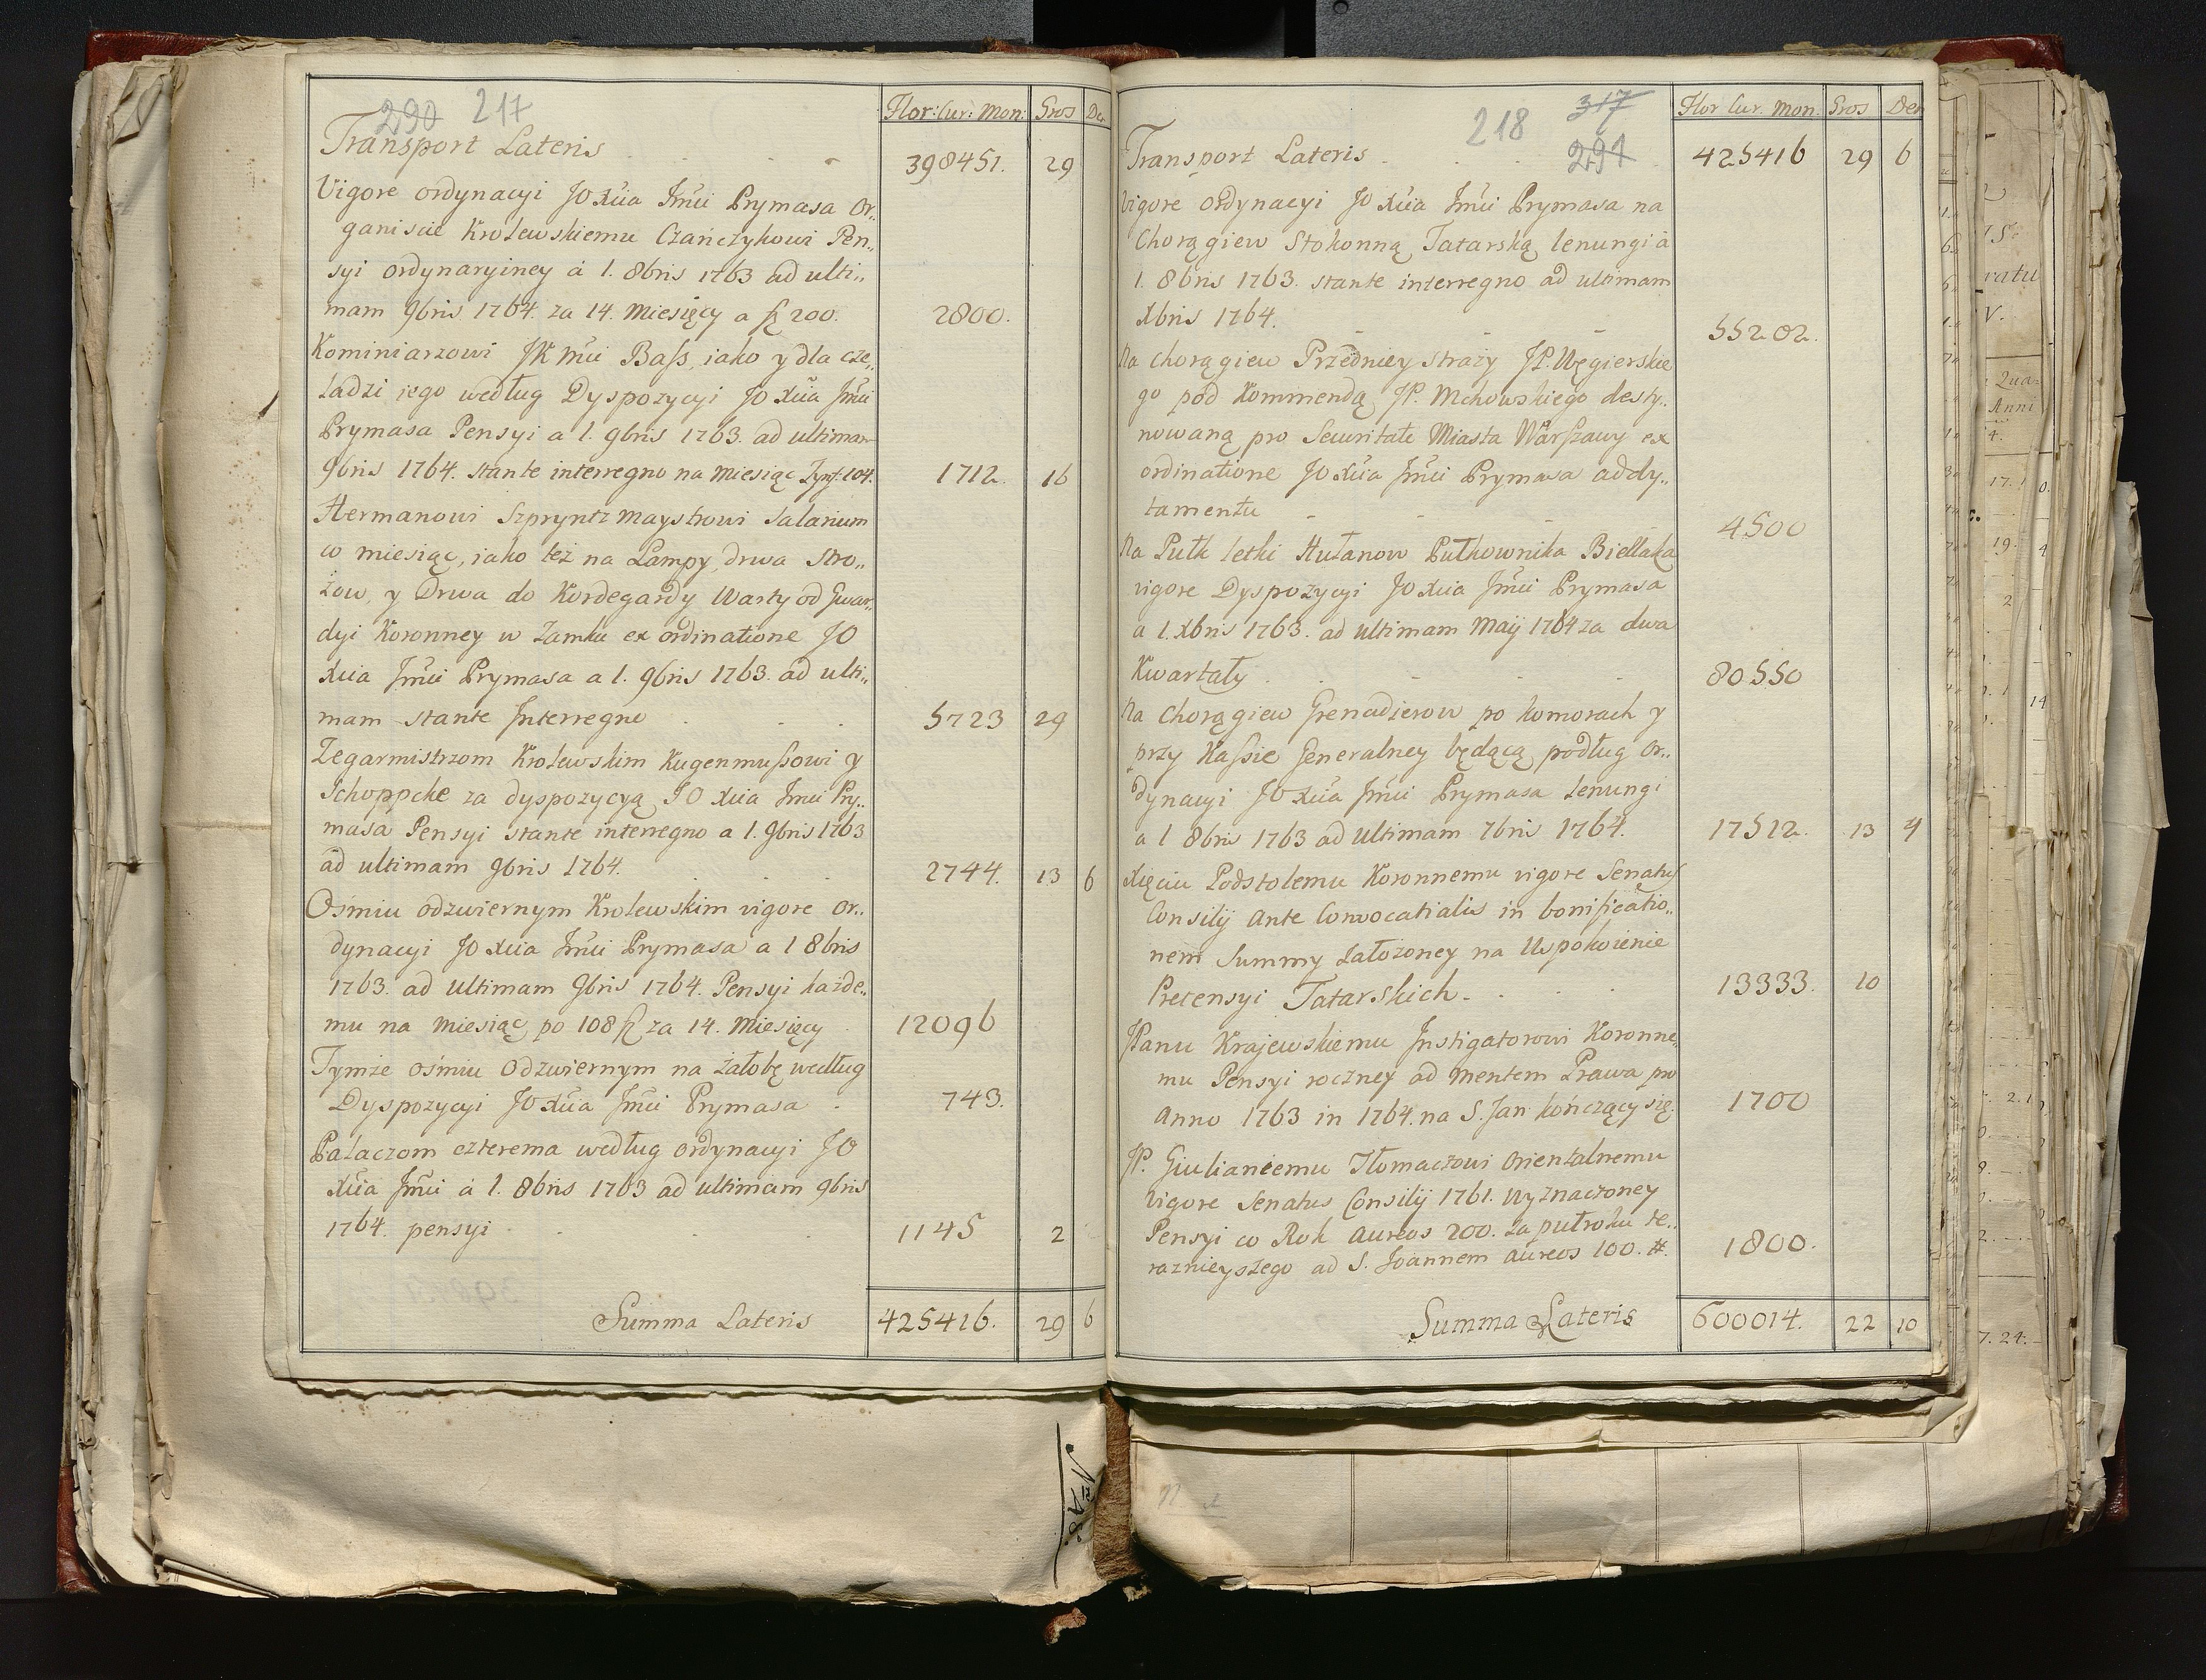 290 217
Flor: Cur: Mon: Gros De
Transport Lateris 398451. 29
Vigore ordynacyi JO Xcia Jmci Prymasa Or„
ganiscie Krolewskiemu Czańczykowi Pen„
syi ordynaryiney á 1. 8bris 1763 ad ulti„
mam 9bris 1764. za 14. Miesięcy a fl 200. 2800.
Kominiarzowi JK Mci Bass, iako y dla cze„
ladzi iego według Dyspozycyi JO Xcia Jmci
Prymasa Pensyi a 1. 9bris 1763. ad ultimam
9bris 1764. stante interregno na Miesiąc Tynf. 104. 1712. 16
Hermanowi Szpryntz maystrowi Salarium
w miesiąc, iako też na Lampy, drwa Stro„
żow, y Drwa do Kordegardy Warty od Gwar„
dyi Koronney w Zamku ex ordinatione JO
Xcia Jmci Prymasa a 1. 9bris 1763. ad ulti„
mam stante Interregno 5723 29
Zegarmistrzom Krolewskim Kugenmussowi y
Schoppcke za dyspozycyą JO Xcia Jmci Pry„
masa Pensyi stante interregno a 1. 9bris 1763
ad ultimam 9bris 1764. 2744. 13 6
Ośmiu odzwiernym Krolewskim vigore or„
dynacyi JO Xcia Jmci Prymasa a 1 8bris
1763. ad ultimam 9bris 1764. Pensyi każde„
mu na miesiąc po 108 fl za 14. Miesięcy 12096
Tymże ośmiu odzwiernym na żałobę według
Dyspozycyi JO Xcia Jmci Prymasa 743.
Palaczom czterema według ordynacyi JO
Xcia Jmci á 1. 8bris 1763 ad ultimam 9bris
1764. pensyi 1145 2
Summa Lateris 425416. 29 6
218 317
291
Flor Cur. Mon. Gros Den
Transport Lateris 425416 29 6
Vigore ordynacyi JO Xcia Jmci Prymasa na
Chorągiew Stokonną Tatarską lenungi á
1. 8bris 1763. stante interregno ad ultimam
Xbris 1764. 55202.
Na chorągiew Przedniey straży JP. Węgierskie
go pod Kommendą JP. Mchowskiego desty„
nowaną pro Securitate Miasta Warszawy ex
ordinatione JO Xcia Jmci Prymasa addy„
tamentu 4500
Na Pułk letki Hułanow Pułkownika Biellaka
vigore Dyspozycyi JO Xcia Jmci Prymasa
a 1. Xbris 1763. ad ultimam Maij 1764 za dwa
Kwartały 80550
Na Chorągiew Grenadierow po komorach y
przy Kassie Generalney będącą podług or„
dynacyi JO Xcia Jmci Prymasa Lenungi
a 1 8bris 1763 ad ultimam 7bris 1764. 17512. 13 4
Xięciu Podstolemu Koronnemu vigore Senatus
Consilij ante Convocatialis in bonificatio„
nem Summy założoney na Uspokoienie
Pretensyi Tatarskich. 13333. 10
JPanu Krajewskiemu Instigatorowi Koronne„
mu Pensyi roczney ad mentem Prawa pro
Anno 1763 in 1764. na S. Jan kończący się. 1700
JP. Giulianiemu Tłomaczowi Orientalnemu
vigore Senatus Consilij 1761. wyznaczoney
Pensyi co Rok aureos 200. za pułroku te„
raznieyszego ad S. Joannem aureos 100. #. 1800.
Summa Lateris 600014. 22 10